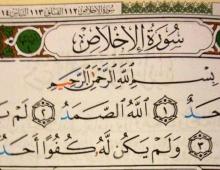 سورة الإخلاص ١١٢ الفلق ١١٣ الناس ١٤
سُورَةُ الإِخْلَاصِ
بِسْمِ اللَّهِ الرَّحْمَٰنِ الرَّحِيمِ
حَدٌ ١ اللَّهُ الصَّمَدُ ٢ لَمْ
٣ وَلَمْ يَكُن لَّهُ كُفُوًا أَحَدٌ